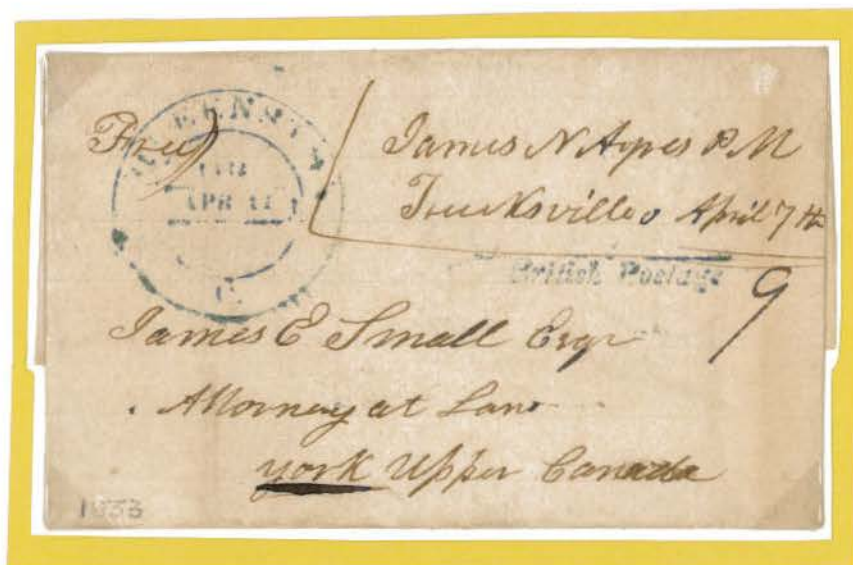 QUEENSTON
Free
APR 11
U. C.
James N Ayres P.M
Trucksville April 7th
British Postage
9
James E Small Esqr
Attorney at Law
york Upper Canada
1833